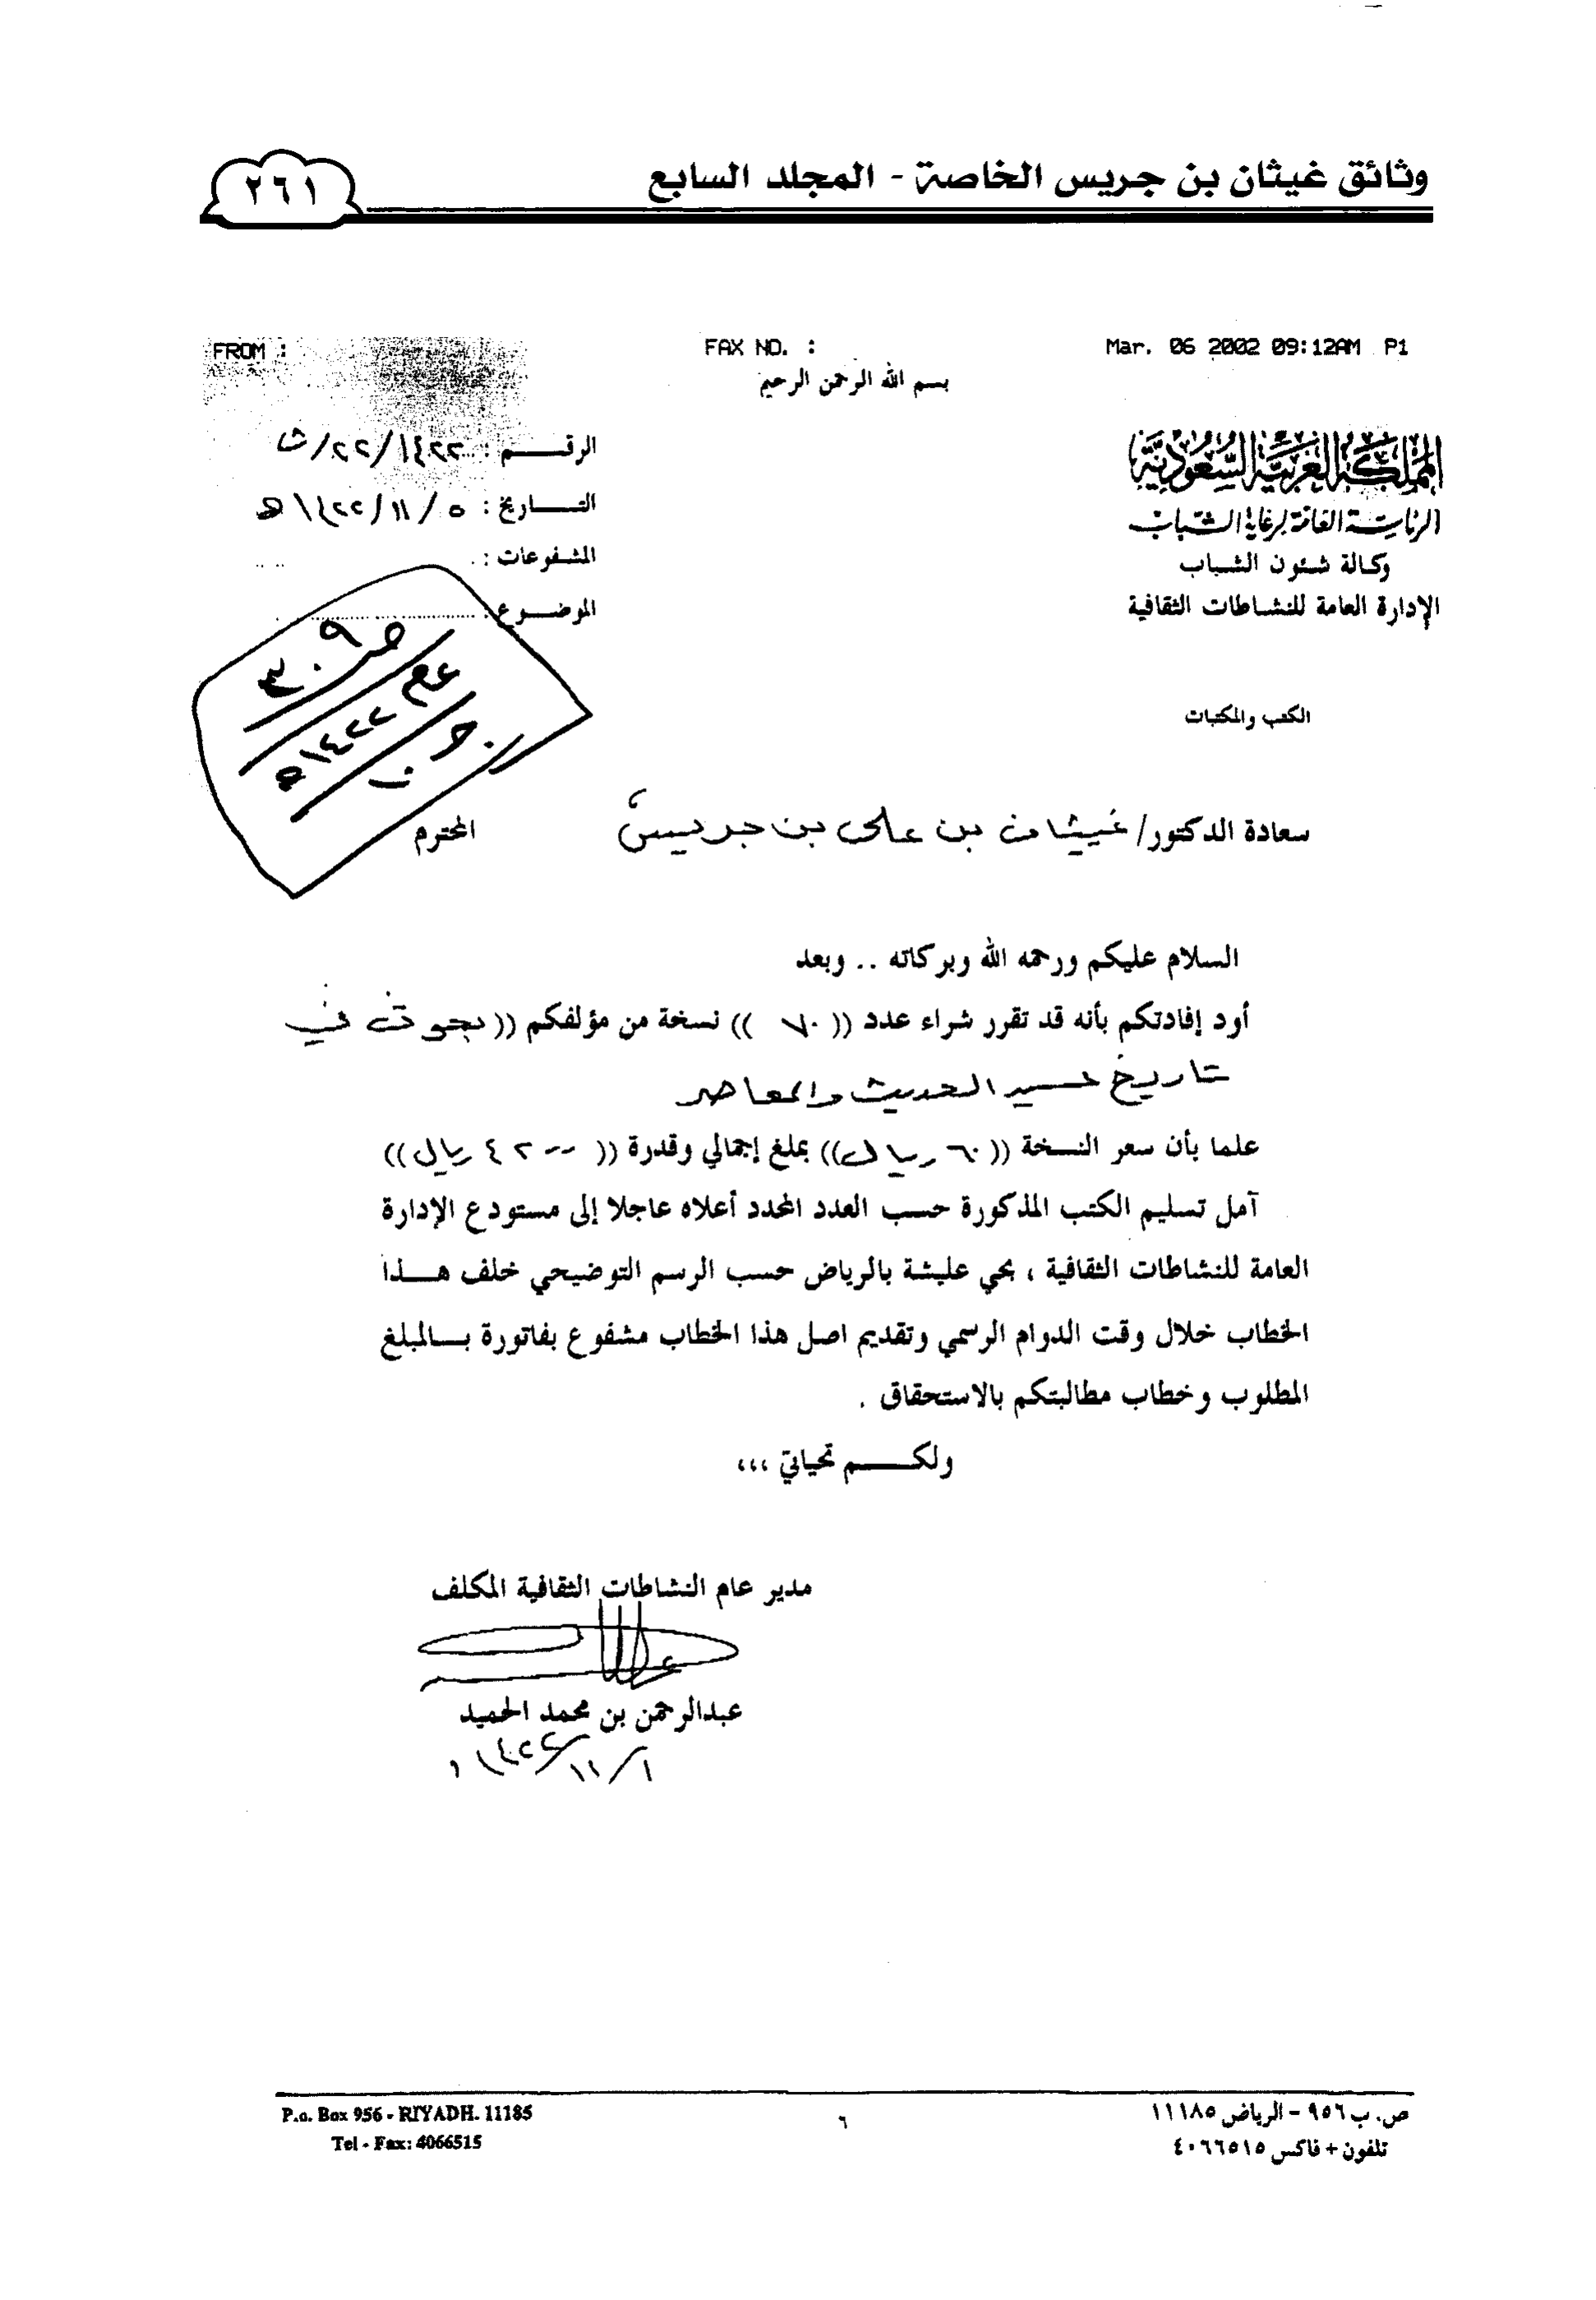 وثائق غيثان بن جريس الخاصة - المجلد السابع
٢٦١
FROM :
FAX NO. :
Mar. 06 2002 09:12AM P1
بسم الله الرحمن الرحيم
المملكة العربية السعودية
الرئاسة العامة لرعاية الشباب
وكالة شئون الشباب
الإدارة العامة للنشاطات الثقافية
الرقم : ١٤٢٢/٢٢/ث
التاريخ : ٥/١١/١٤٢٢هـ
المشفوعات :
الموضوع :
ص ٣٠٩
١٤٢٢هـ
الكتب والمكتبات
سعادة الدكتور/ غيثان بن علي بن جريس المحترم
السلام عليكم ورحمه الله وبركاته .. وبعد
أود إفادتكم بأنه قد تقرر شراء عدد (( ٧٠ )) نسخة من مؤلفكم (( بحوث في
تاريخ عسير الحديث والمعاصر
علما بأن سعر النسخة (( ٦٠ ريال)) بملغ إجمالي وقدرة (( ٤٢٠٠ ريال))
آمل تسليم الكتب المذكورة حسب العدد المحدد أعلاه عاجلا إلى مستودع الإدارة
العامة للنشاطات الثقافية ، بحي عليشة بالرياض حسب الرسم التوضيحي خلف هذا
الخطاب خلال وقت الدوام الرسمي وتقديم اصل هذا الخطاب مشفوع بفاتورة بالمبلغ
المطلوب وخطاب مطالبتكم بالاستحقاق .
ولكم تحياتي ،،،
مدير عام النشاطات الثقافية المكلف
عبدالرحمن بن محمد الحميد
١/١١/١٤٢٢
ص.ب ٩٥٦ - الرياض ١١١٨٥
تلفون + فاكس ٤٠٦٦٥١٥
٦
P.o. Box 956 - RIYADH. 11185
Tel - Fax: 4066515